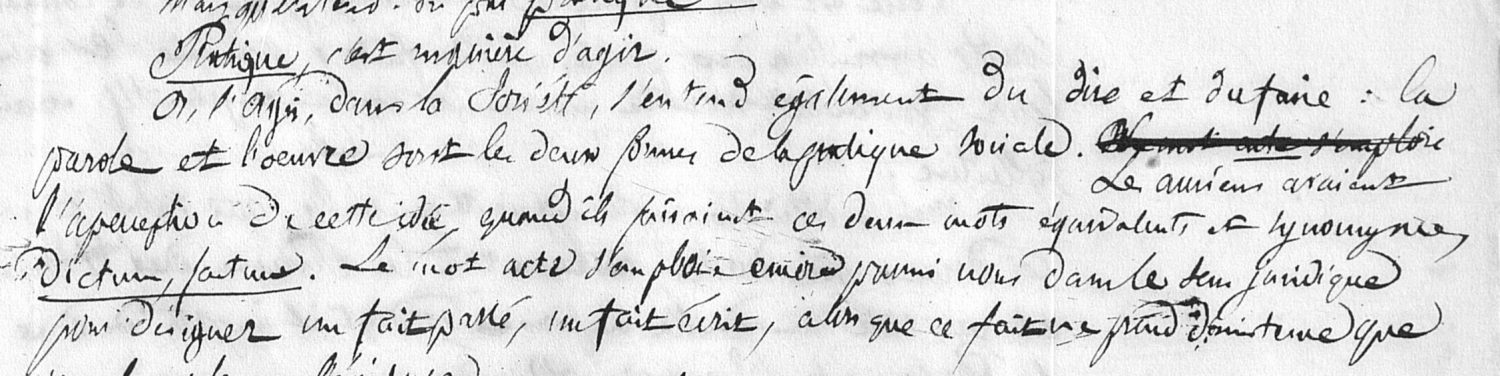 Pratique, c'est manière d'agir.
Or, l'agir, dans la Société, s'entend également du dire et du faire : la
parole et l'oeuvre sont les deux formes de la pratique sociale. Le mot acte s'emploie
Les anciens avaient
l'aperception de cette idée, quand ils faisaient ces deux mots équivalents et synonymes,
dictum, factum. Le mot acte s'emploie encore parmi nous dans le sens juridique
pour désigner un fait passé, un fait écrit, alors que ce fait ne prend que